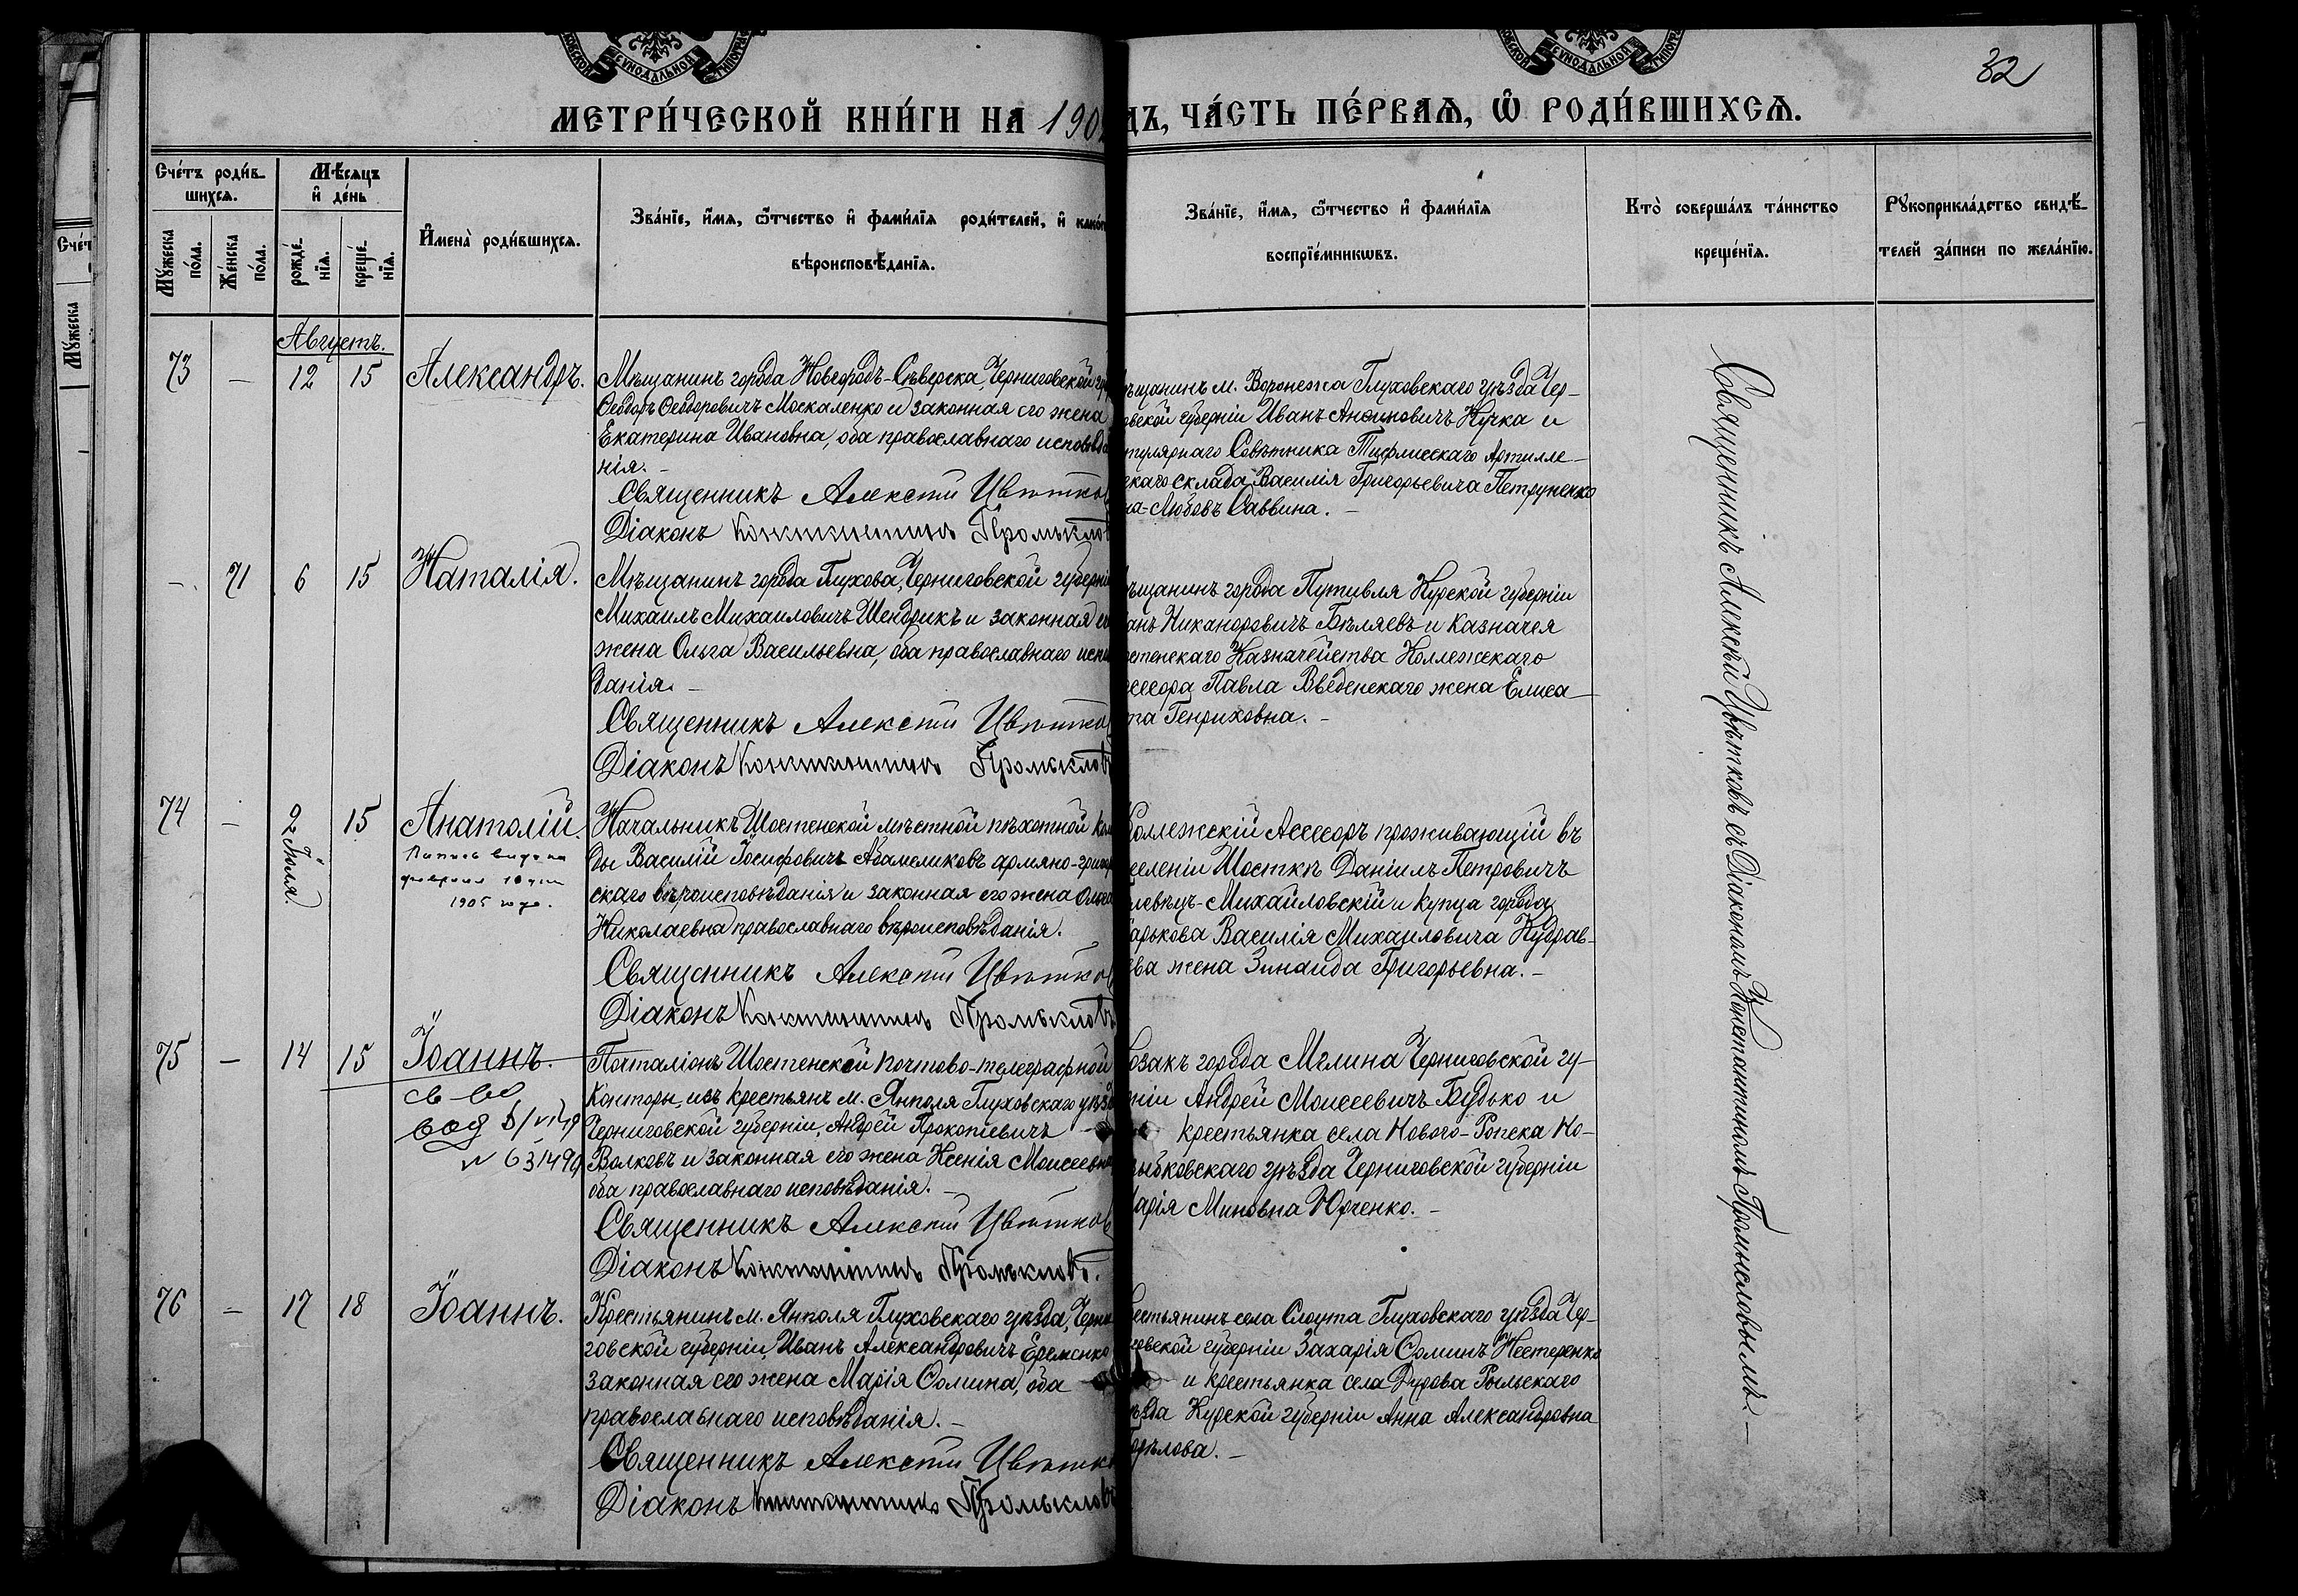 32
МЕТРИ́ЧЕСКОЙ КНИ́ГИ НА 190
ДЪ, ЧА́СТЬ ПЕ́РВАѦ, Ѽ РОДИ́ВШИХСѦ.
Сче́тъ роди́в-
шихсѧ.
Мѣ́сѧцъ
и҆ де́нь
Мꙋ́жеска по́ла.
Же́нска по́ла.
рожде́-нїѧ.
креще́-нїѧ.
И҆мена̀ роди́вшихсѧ.
Зва́нїе, и҆́мѧ, ѻ҆́тчество и҆ фами́лїѧ роди́телей, и҆ како́
вѣроисповѣ́данїѧ.
Зва́нїе, и҆́мѧ, ѻ҆́тчество и҆ фами́лїѧ
воспрїе́мникѡвъ.
Кто̀ соверша́лъ та́инство
креще́нїѧ.
Рꙋкоприкла́дство свидѣ́-
телей за́писи по жела́нїю.
Августъ.
73 — 12 15 Александръ.
Мѣщанинъ города Новгородъ-Сѣверска, Черниговской
Ѳеодоръ Ѳеодоровичъ Москаленко и законная его жена
Екатерина Ивановна, оба православнаго исповѣда
нія. —
Священникъ Алексѣй Цвѣтков
Діаконъ Константинъ Промыслов
ѣщанинъ м. Воронежа Глуховскаго уѣзда Чер-
овской губерніи Иванъ Анѳиновичъ Кучка и
тулярнаго Совѣтника Тифлисскаго Артилле-
скаго склада Василія Григорьевича Петруненко
на-Любовь Саввина. —
— 71 6 15 Наталія.
Мѣщанинъ города Глухова, Черниговской губерні
Михаилъ Михаиловичъ Шендрикъ и законная его
жена Ольга Васильевна, оба православнаго испо
данія. —
Священникъ Алексѣй Цвѣтков
Діаконъ Константинъ Промыслов
ѣщанинъ города Путивля Курской губерніи
анъ Никаноровичъ Бѣляевъ и Казначея
стенскаго Казначейства Коллежскаго
сессора Павла Введенскаго жена Елиса-
та Генриховна. —
74 — 2 Іюля. 15 Анатолій.
1905 года.
Начальникъ Шостенской мѣстной пѣхотной ком
ды Василій Іосифовичъ Абамеликовъ армяно-григор
скаго вѣроисповѣданія и законная его жена Ольга
Николаевна православнаго вѣроисповѣданія.
Священникъ Алексѣй Цвѣтков
Діаконъ Константинъ Промыслов
Коллежскій Ассесоръ проживающій въ
селеніи Шосткѣ Даніилъ Петровичъ
левецъ-Михайловскій и купца города
арькова Василія Михаиловича Кудрав-
ева жена Зинаида Григорьевна. —
75 — 14 15 Іоаннъ.
631499
Почталіонъ Шостенской почтово-телеграфной
Конторы, изъ крестьянъ м. Янполя Глуховскаго уѣзд
Черниговской губерніи, Андрей Прокопіевичъ
Волковъ и законная его жена Ксенія Моисеевна
оба православнаго исповѣданія. —
Священникъ Алексѣй Цвѣтков
Діаконъ Константинъ Промысловъ.
озакъ города Мглина Черниговской гу-
рніи Андрей Моисеевичъ Будько и
крестьянка села Нового-Ропска Но-
зыбковскаго уѣзда Черниговской губерніи
арія Миновна Юрченко. —
76 — 17 18 Іоаннъ.
Крестьянинъ м. Янполя Глуховскаго уѣзда, Черни
говской губерніи, Иванъ Александровичъ Еременко
законная его жена Марія Ѳомина, оба
православнаго исповѣданія. —
Священникъ Алексѣй Цвѣтко
Діаконъ Константинъ Промыслов
естьянинъ села Слоута Глуховскаго уѣзда Чер-
говской губерніи Захарія Ѳоминъ Нестеренко
и крестьянка села Дурова Рыльскаго
ѣзда Курской губерніи Анна Александровна
орѣлова. —
Священникъ Алексѣй Цвѣтковъ съ Діакономъ Константиномъ Промысловымъ. —
Сче́т
Мꙋ́жеска